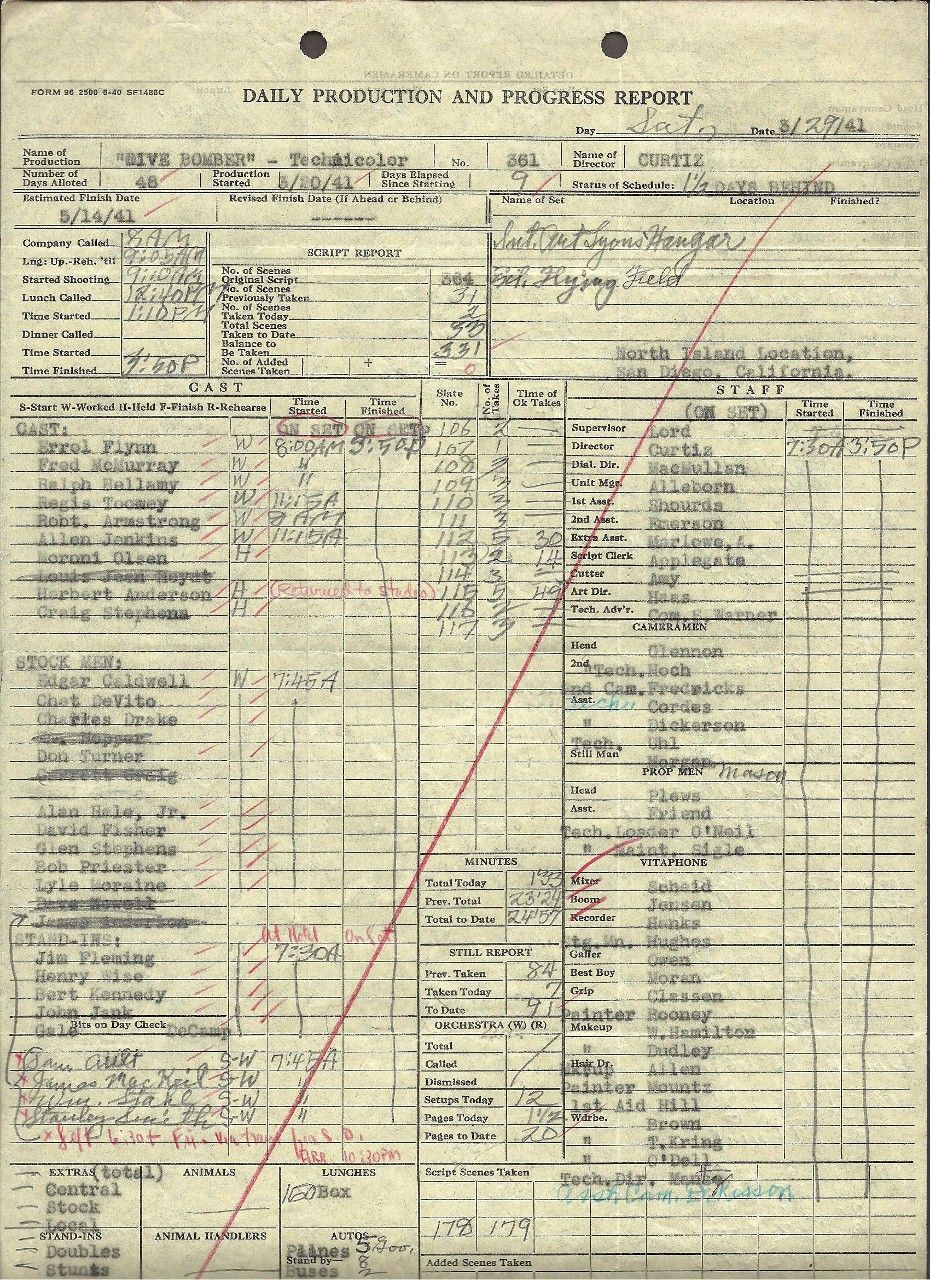 FORM 96 2500 6-40 SF1486C
DAILY PRODUCTION AND PROGRESS REPORT
Day Sat. Date 3/29/41
Name of Production "DIVE BOMBER" - Technicolor No. 361 Name of Director CURTIZ
Number of Days Alloted 48 Production Started 3/20/41 Days Elapsed Since Starting 9 Status of Schedule: 1½ DAYS BEHIND
Estimated Finish Date 5/14/41 Revised Finish Date (If Ahead or Behind) ------
Name of Set Location Finished?
Int. Art Lyons Hangar
Ext. Flying Field
North Island Location,
San Diego, California.
Company Called 8 AM
Lng: Up.-Reh. 'til 9:05 AM
Started Shooting 9:10 AM
Lunch Called 12:40 PM
Time Started 1:10 PM
Dinner Called
Time Started
Time Finished 3:50 P
SCRIPT REPORT
No. of Scenes Original Script 364
No. of Scenes Previously Taken 31
No. of Scenes Taken Today 2
Total Scenes Taken to Date 33
Balance to Be Taken 331
No. of Added Scenes Taken + = 0
CAST
S-Start W-Worked H-Held F-Finish R-Rehearse Time Started Time Finished
CAST: ON SET ON SET
Errol Flynn W 8:00 AM 3:50 P
Fred McMurray W "
Ralph Bellamy W "
Regis Toomey W 11:15 A
Robt. Armstrong W 8 AM
Allen Jenkins W 11:15 A
Moroni Olsen H
Louis Jean Heydt
Herbert Anderson H (Returned to Studio)
Craig Stephens H
STOCK MEN:
Edgar Caldwell W 7:45 A
Chet DeVito
Charles Drake
Hopper
Don Turner
Garrett Craig
Alan Hale, Jr.
David Fisher
Glen Stephens
Bob Priester
Lyle Moraine
Dave Newell
James Anderson
STAND-INS: At Hotel On Set
Jim Fleming 7:30 A
Henry Wise
Bert Kennedy
John Jank
Bits on Day Check
Gale DeCamp
x Sam Ault S-W 7:45 A
x James S-W "
x Wm. Stahl S-W "
x Stanley Smith S-W "
x Left 6:30
Arr. 10:30 PM
Slate No. No. of Takes Time of Ok Takes
106 2
107 1
108 3
109
110
111 3
112 5 30
113 2 14
114 3
115 5 49
116
117 3
MINUTES
Total Today 1'33
Prev. Total 23'24
Total to Date 24'57
STILL REPORT
Prev. Taken 84
Taken Today 7
To Date 91
ORCHESTRA (W) (R)
Total
Called
Dismissed
Setups Today 12
Pages Today 1½
Pages to Date 20
STAFF
(ON SET) Time Started Time Finished
Supervisor Lord
Director Curtiz 7:30A 3:50P
Dial. Dir. MacMullan
Unit Mgr. Alleborn
1st Asst. Shourds
2nd Asst. Emerson
Extra Asst. Marlowe, A.
Script Clerk Applegate
Cutter Amy
Art Dir. Haas
Tech. Adv'r. Com. S. Warner
CAMERAMEN
Head Glennon
2nd "Tech. Hoch
2nd Cam. Fredricks
Asst. Cordes
" Dickerson
Tech. Uhl
Still Man Morgan Mason
PROP MEN
Head Plews
Asst. Friend
Tech. Loader O'Neil
" Maint. Sigle
VITAPHONE
Mixer Scheid
Boom Jensen
Recorder Hanks
Stg. Mn. Hughes
Gaffer Owen
Best Boy Moran
Grip Classen
Painter Rooney
Makeup W. Hamilton
" Dudley
Hair Dr. Allen
Painter Mountz
1st Aid Hill
Wdrbe. Brown
" T. Kring
" O'Dell
Tech. Dir.
Asst Cam.
EXTRAS (total) ANIMALS LUNCHES
Central 160 Box
Stock
Local
STAND-INS ANIMAL HANDLERS AUTOS
Doubles Planes 5
Stunts Stand by— Buses
Script Scenes Taken
178 179
Added Scenes Taken